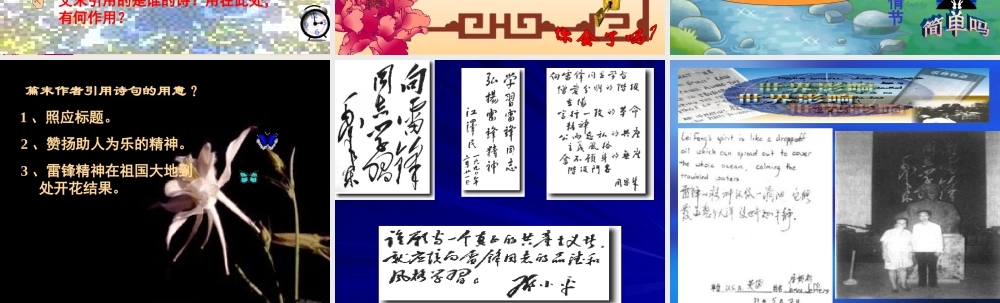 文末引用的是谁的诗？用在此处，
有何作用？
你会了吗？
情节
简单吗
篇末作者引用诗句的用意？
1 、照应标题。
2 、赞扬助人为乐的精神。
3 、雷锋精神在祖国大地到
处开花结果。
向雷锋
同志学习
毛泽东
学习雷锋同志
弘扬雷锋精神
江泽民
一九九〇年
向雷锋同志学习
憎爱分明的阶级
立场
言行一致的革命
精神
公而忘私的共产
主义风格
奋不顾身的无产
阶级斗志
周恩来
谁愿当一个真正的共产主义者，
就应该向雷锋同志的品德和
风格学习。
邓小平
世界影响
世界影响
Lei Feng's spirit is like a drop of
oil which can spread out to cover
the whole ocean, calming the
troubled waters